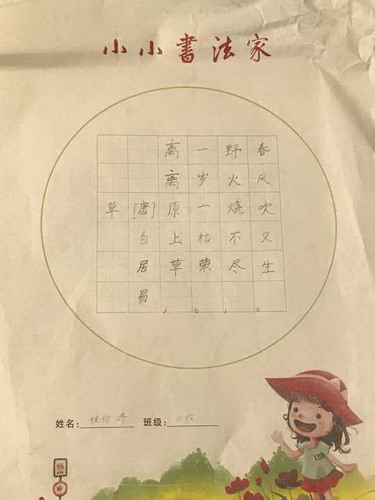 小小書法家
草
[唐]白居易
离离原上草，
一岁一枯荣。
野火烧不尽，
春风吹又生。
姓名： 班级：